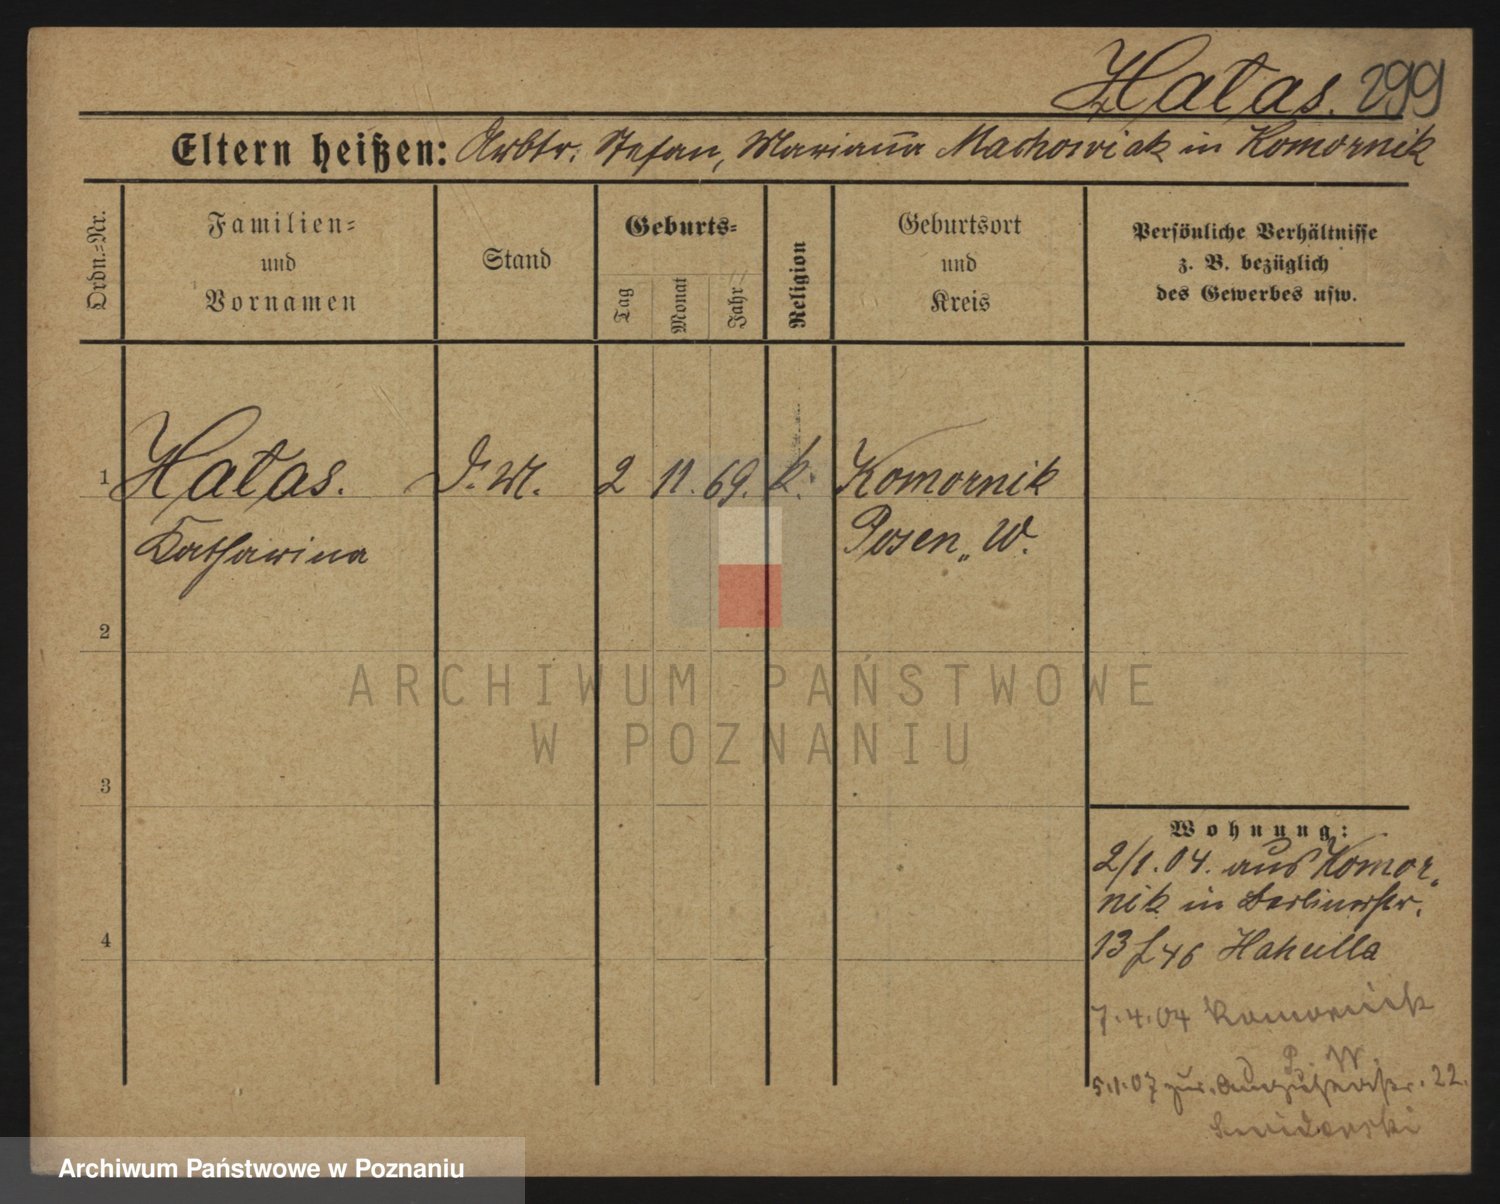 Hatas. 299
Eltern heißen: Arbtr. Stefan, Marianna Machowiak in Komornik
Ordn.-Nr.
Familien-
und
Vornamen
Stand
Geburts-
Tag
Monat
Jahr
Religion
Geburtsort
und
Kreis
Persönliche Verhältnisse
z. B. bezüglich
des Gewerbes usw.
1 Hatas. D. M. 2 11. 69. k. Komornik
Katharina Posen, W.
2
3
4
Wohnung:
2/1.04. aus Komor-
nik in Berlinerstr.
13
7.4.04 Komornik
P. W.
5.1.07 zur. 22.
ARCHIWUM PAŃSTWOWE
W POZNANIU
Archiwum Państwowe w Poznaniu